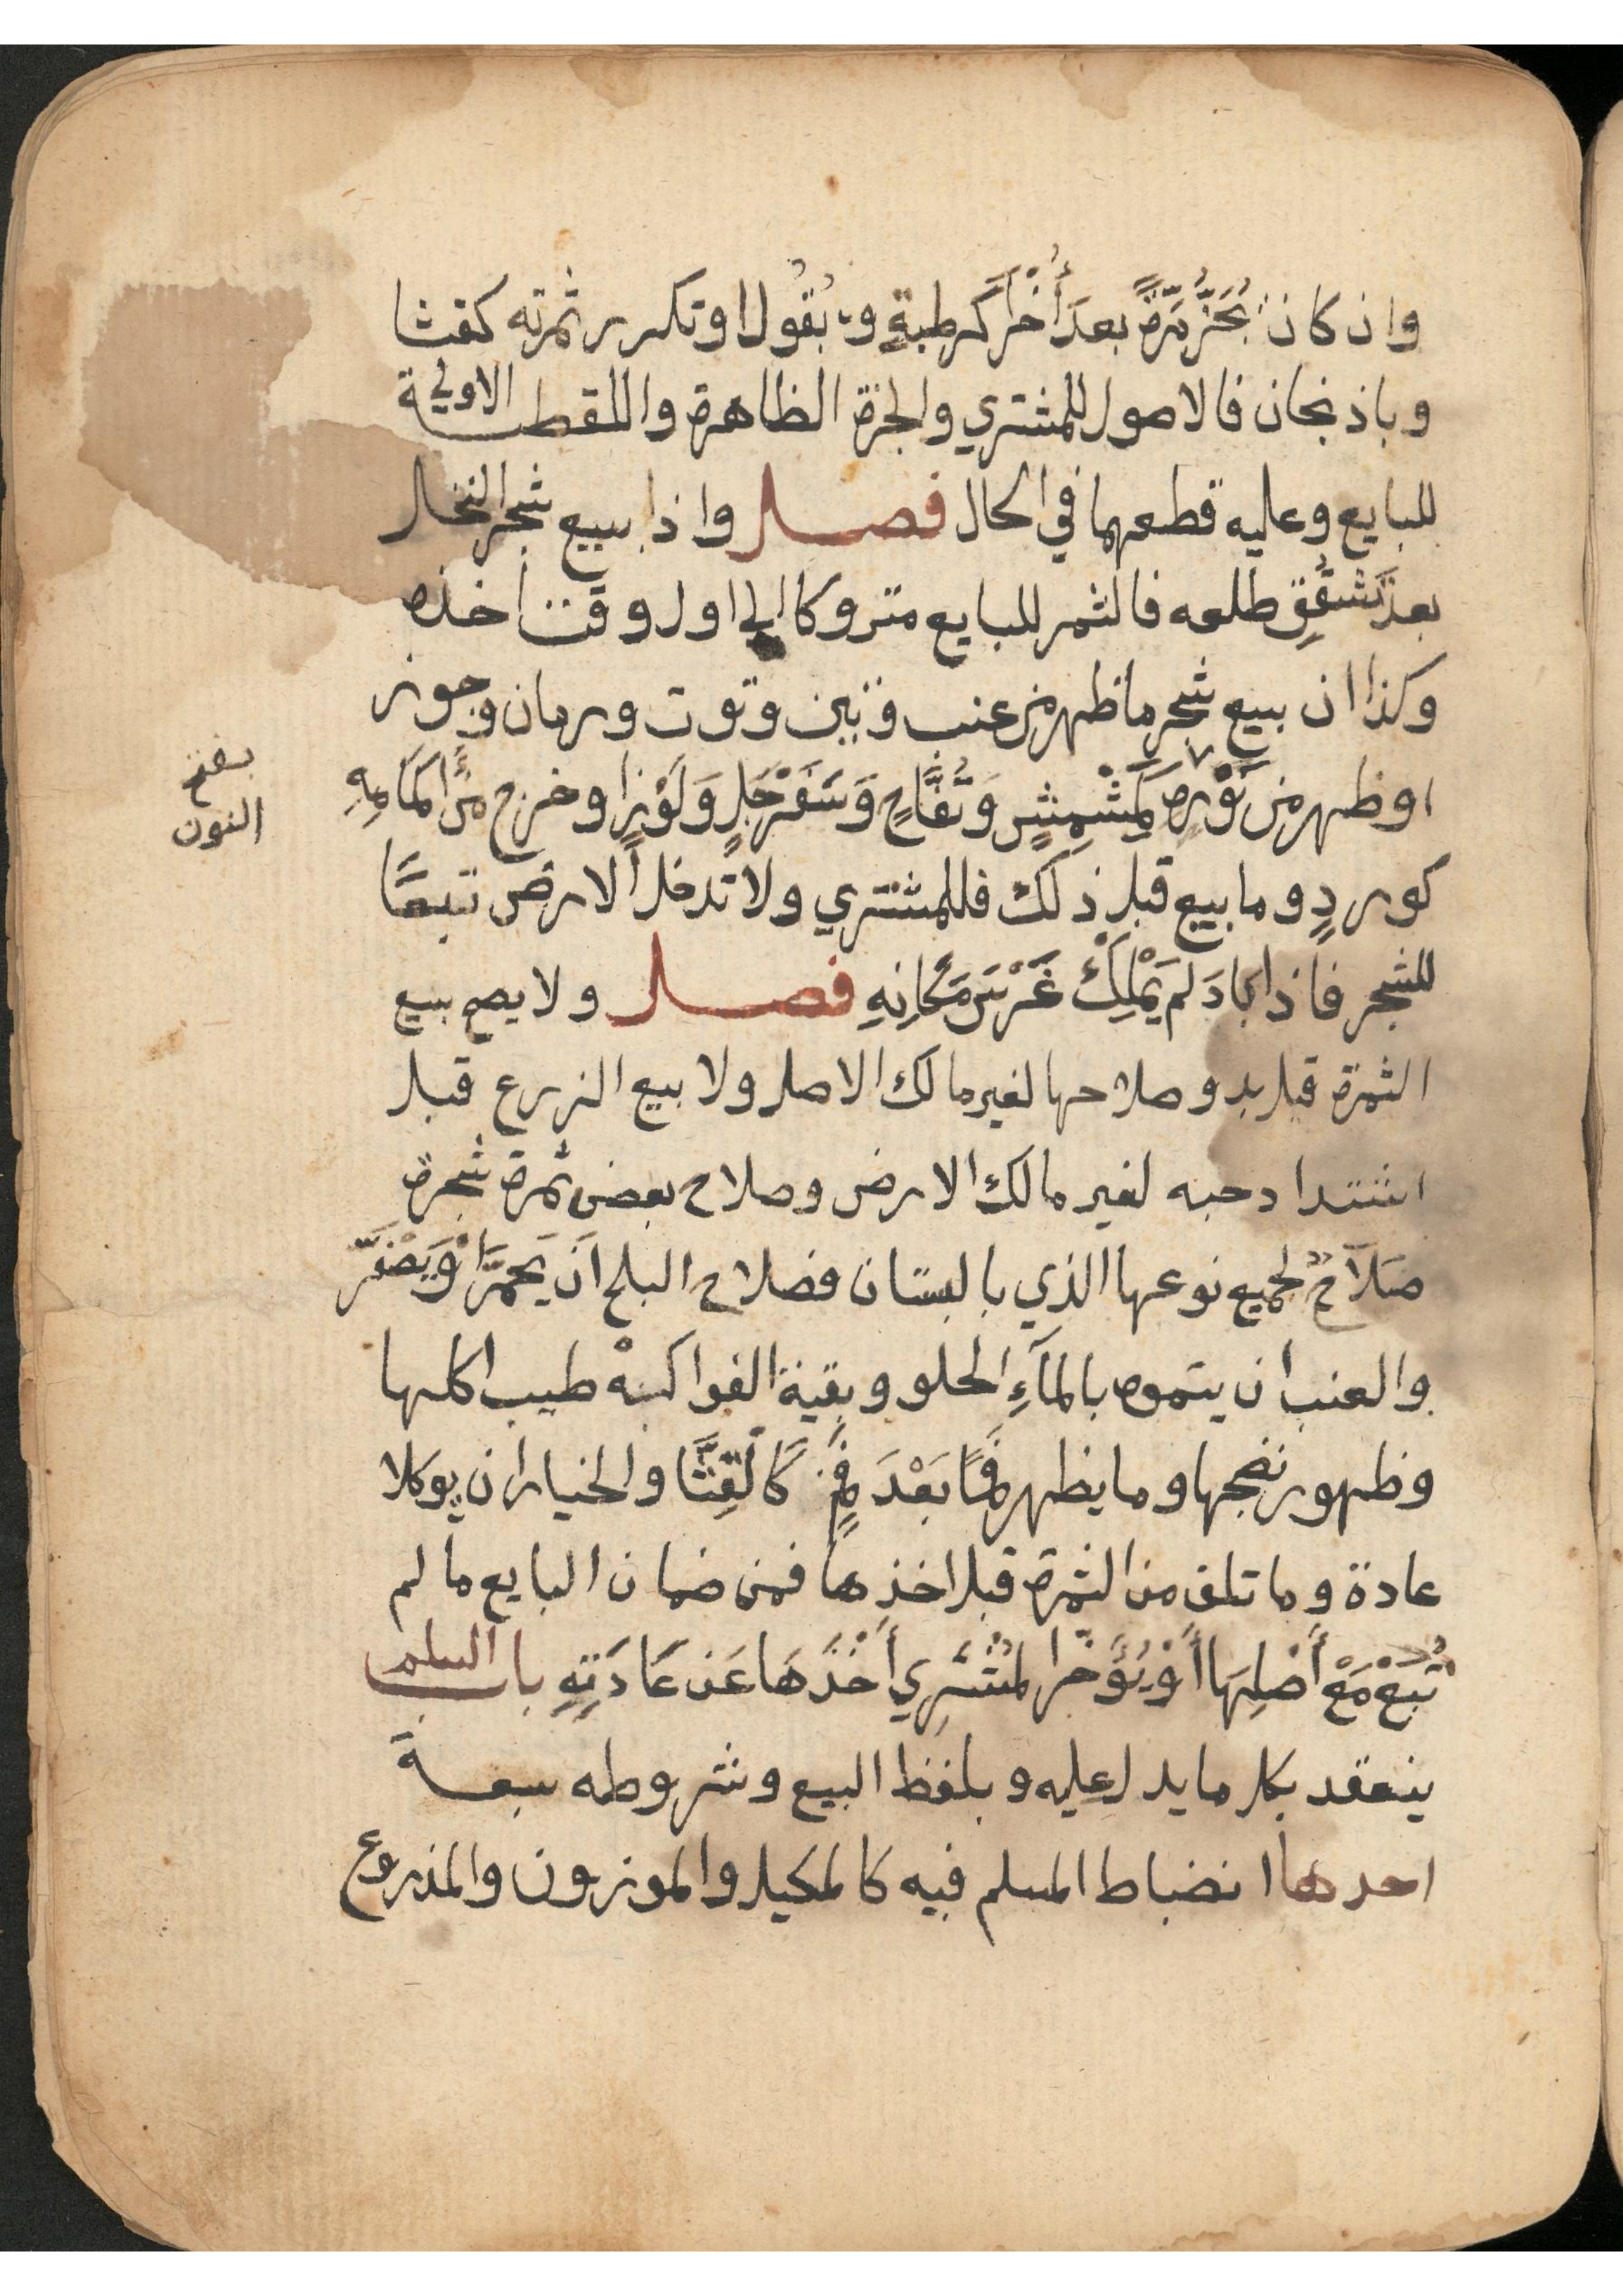 وان كان يُجَزُّ مَرَّةً بعدَ أُخْرَ كرطبةٍ وبُقُول اوتكرر ثمرته كقثا
وباذنجان فالاصول للمشتري والجزة الظاهرة واللقطة الاولي
للبايع وعليه قطعهما في الحال فصل واذا بيع شجر النخل
بعد تَشَقُّقِ طلعه فالثمر للبايع متروكا الي اول وقت اخذه
وكذا ان بيع شجر ما ظهر من عنب وتين وتوت ورمان وجوز
اوظهر من نَوْرِه كَمِشْمِشٍ وَتُفَّاحٍ وَسَفَرْجَلٍ وَلَوْزٍ اوخرج مِنْ اكمَامِهِ
بفتح
النون
كوردٍ وما بيع قبل ذلك فللمشتري ولا تدخل الارض تبعًا
للشجر فاذا بَادَ لم يَمْلِكْ غَرْسَ مَكَانِهِ فصل ولا يصح بيع
الثمرة قبل بدو صلاحها لغير مالك الاصل ولا بيع الزرع قبل
اشتداد حبه لغير مالك الارض وصلاح بعض ثمرة شجرة
صَلَاحٌ لجميع نوعها الذي بالبستان فصلاح البلح انَ يَحمَرَّ اوْ يَصْفَرَّ
والعنب ان يتموه بالمآءِ الحلو وبقية الفواكه طيب اكلها
وظهور نضجها وما يظهر فَمًا بَعْدَ فَمٍ كَالقِثَّا والخيار ان يوكلا
عادة وما تلف من الثمرة قبل اخذها فمن ضمان البايع ما لم
تُبَعْ مَعْ أَصْلِهَا أَوْ يُؤَخِّر المُشْتَرِي أَخْذَهَا عَن عَادَتِهِ باب السلم
ينعقد بكل ما يدل عليه وبلفظ البيع وشروطه سبعة
احدها انضباط المسلم فيه كالمكيل والموزون والمذروع